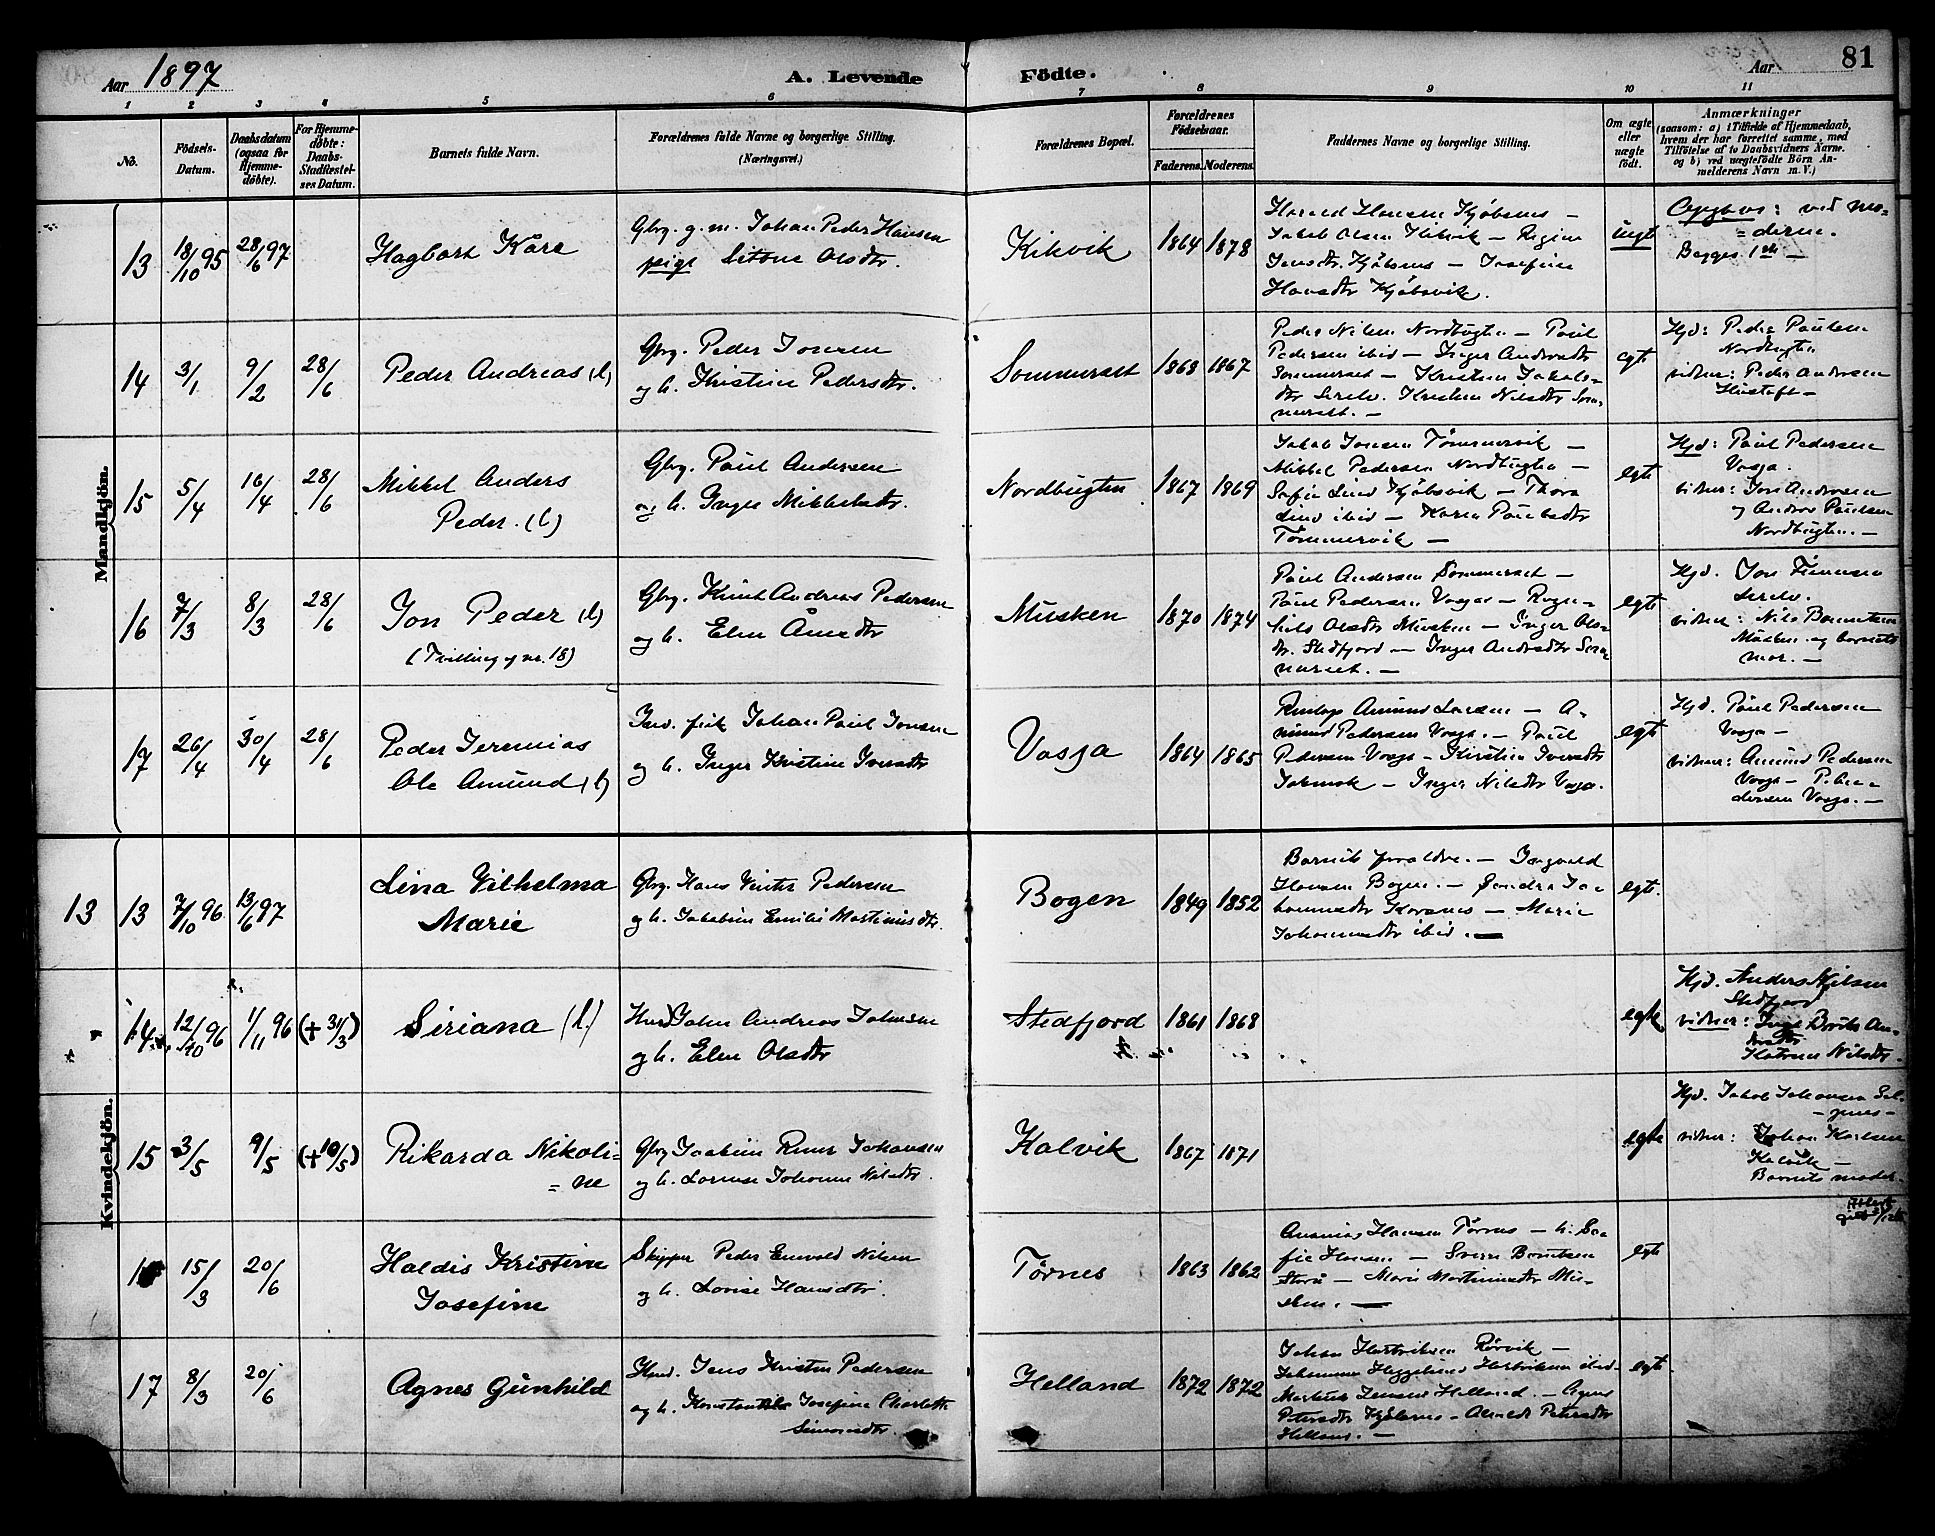 Aar 1897
A. Levende
Födte.
Aar
81
1 2 3 4 5 6 7 8 9 10 11
No.
Födsels-
Datum.
Daabsdatum
(ogsaa for
Hjemme-
döbte).
For Hjemme-
döbte:
Daabs-
Stadfæstel-
ses Datum.
Barnets fulde Navn.
Forældrenes fulde Navne og borgerlige Stilling.
(Næringsvei.)
Forældrenes Bopæl.
Forældrenes
Födselsaar.
Faderens. Moderens.
Faddernes Navne og borgerlige Stilling.
Om ægte
eller
uægte
födt.
Anmærkninger
(saasom: a) i Tilfælde af Hjemmedaab,
hvem der har forrettet samme, med
Tilföielse af to Daabsvidners Navne.
og b) ved uægtefödte Börn An-
melderens Navn m. V.)
Mandkjön.
13 18/10 95 28/6 97
Hagbart Kåre
Gbrg. g. m. Johan Peder Hansen
pige Olsdtr.
Kikvik
1864 1878
Harald Hansen Kjöbsnes –
Jakob Olsen Kikvik – Regine
Jensdtr. Kjöbsnes – Josefine
Hansdtr Kjöbsvik.
uegt
Opgives: ved mo-
= deren.
Begges 1ste –
14 3/1 9/2 28/6
Peder Andreas (l)
Gbrg. Peder Jonsen
og h. Kristine Pedersdtr.
Sommerset
1868 1867
Peder Nilsen Nordbugten – Paul
Pedersen ibid – Inger Andersdtr
Sommerset – Kristine Jakobs-
dtr – Nilsdtr Som-
merset. –
egt
Hjd: Peder Paulsen
Nordbugten
vidner: Peder Andersen
15 5/4 16/4 28/6
Mikkel Anders
Peder. (l)
Gbrg. Paul Andersen
og h. Inger Mikkelsdtr.
Nordbugten
1867 1869
Jakob Jonsen Tömmervik –
Mikkel Pedersen Nordbugten –
Sofie Lind Kjöbsvik – Thora
Lind ibid – Karen Paulsdtr
Tömmervik –
egte
Hjd: Paul Pedersen
Vasja.
vidner: Jon Andersen
og Andreas Paulsen
Nordbugten. –
16 7/3 8/3 28/6
Jon Peder (l)
(Tvilling og nr. 18)
Gbrg. Knut Andreas Pedersen
og h. Elen Åmsdtr
Musken
1870 1874
Paul Andersen Sommerset –
Paul Pedersen Vasja –
Olsdtr Musken – Inger Ols-
dtr. Stedfjord – Inger Andersdtr Som-
merset. –
egte
Hjd. Jon
vidner: Nils
Musken og barnets
mor. –
17 26/4 30/4 28/6
Peder Jeremias
Ole Amund (l)
Ind. fisk Johan Paul Jonsen
og h. Inger Kristine Iversdtr
Vasja
1864 1865
Amund Larsen – A-
mund Pedersen Vasja. – Paul
Pedersen Vasja – Kirstine Iversdtr
– Inger Nilsdtr Vasja.
egte
Hjd. Paul Pedersen
Vasja –
vidner: Amund Pedersen
Vasja – P. An-
dersen Vasja. –
Kvindekjön.
13
13 7/10 96 13/6 97
Lina Vilhelma
Marie
Gbrg. Hans Pedersen
og h. Jakobine Emilie Martinusdtr.
Bogen
1849 1852
Barnets foraldre. – Ingvald
Hansen Bogen. – Jo-
hannesdtr Korsnes – Marie
Johannesdtr ibid. –
egte.
14 12/10 96 1/11 96 (+ 31/3)
Siriana (l.)
Husmd Johan Andreas Johnsen
og h. Elen Olsdtr
Stedfjord
1861 1868
egte
Hjd. Anders Nilsen
Stedfjord
vidner: Inger An-
dersdtr
Katrine Nilsdtr.
15 3/5 9/5 (+ 10/5)
Rikarda Nikoli-
= ne
Gbrg Joakim Johansen
og h. Lorense Johanne Nilsdtr.
Kalvik
1867 1871
egte
Hjd. Jakob Johansen
vidner: Johan Karlsen
Kalvik –
Barnets moder
16 15/3 20/6
Haldis Kristine
Josefine
Skipper Peder Enevald Nilsen
og h. Lovise Hansdtr.
Tørnes
1863 1862
Ananias Hansen Tørnes – h. So-
fie Hansen – Sverre Berntsen
Storå – Marie Martinusdtr Mu-
sken. –
egte
17 8/3 20/6
Agnes Gunhild
Husmd. Jens Kristen Pedersen
og h. Josefine Charlotte
Simonsdtr.
Helland
1872 1872
Johan Hartviksen Rørvik –
Johannes Hartviksen ibid –
Markus Jensen Helland. – Agnes
Petersdtr Kjöbsnes – Petersdtr
Helland. –
egte